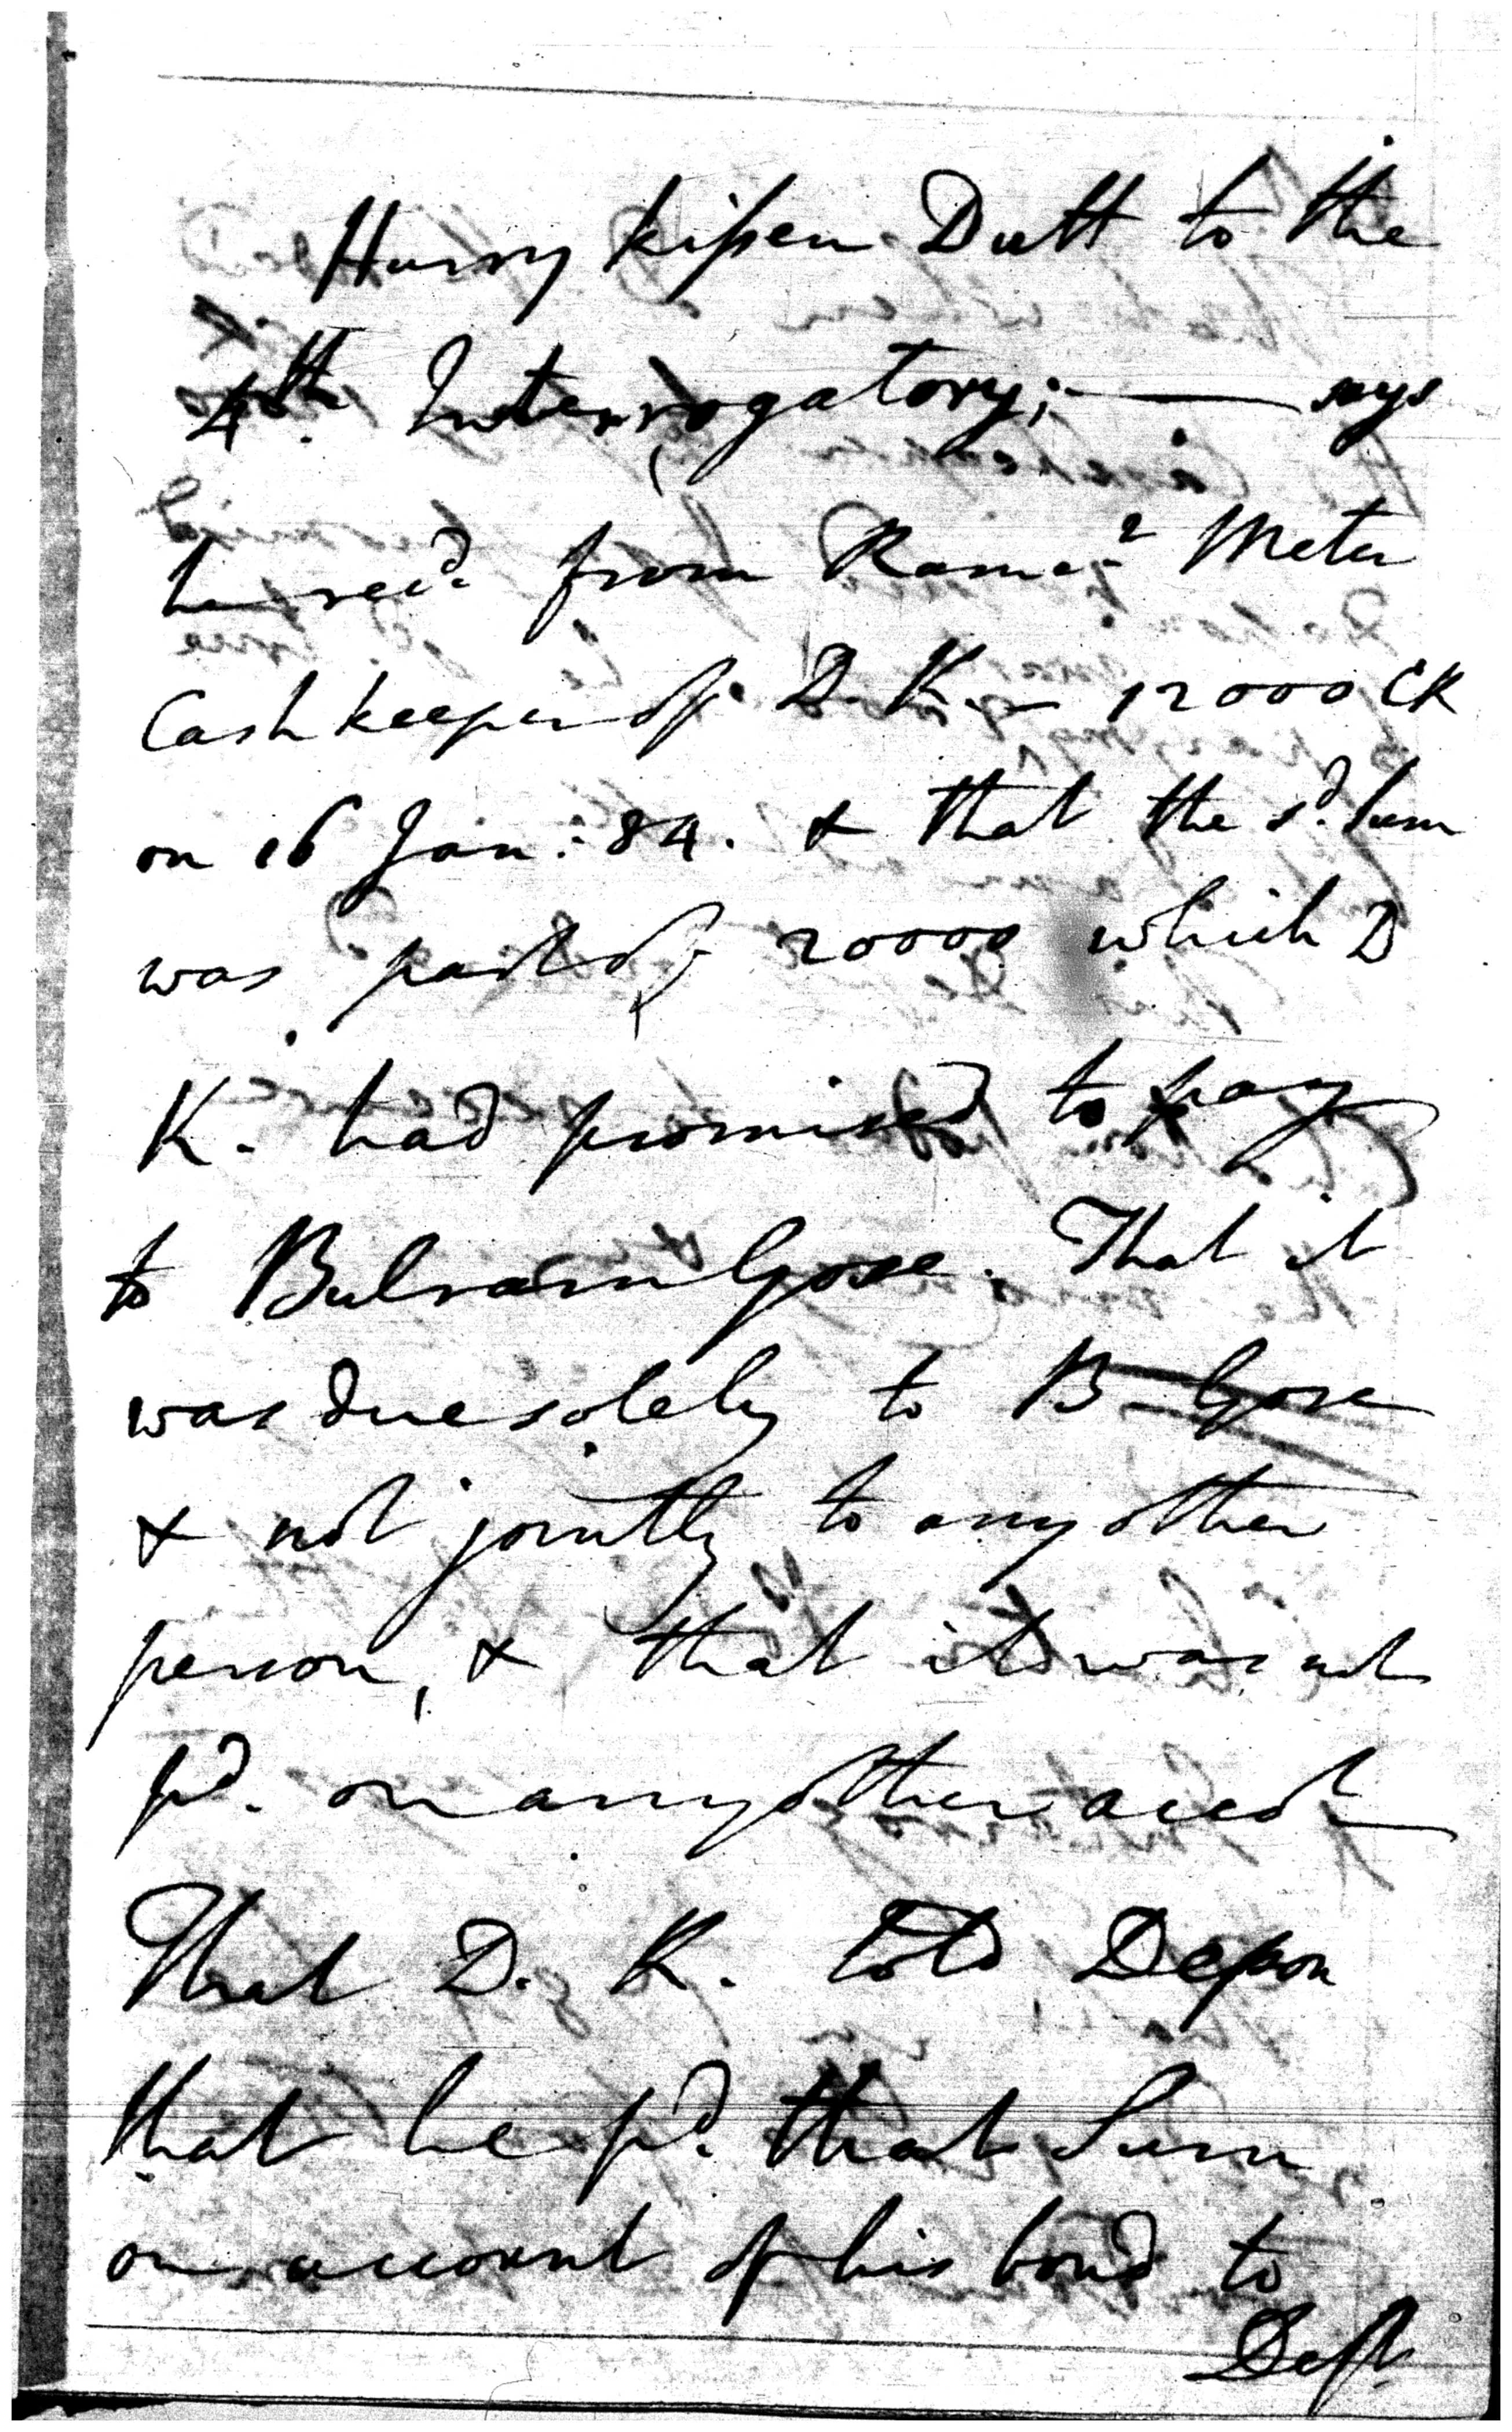 Hurry kissen Dutt to the
4th. Interrogatory;- —— says
he recd. from Ramcr. Meter
Cash keeper of D. K — 12000 CR
on 16 Jan: 84. & that the sd. Sum
was part of 20000 which D
K. had promised to pay
to Bulram Gose. That it
was due solely to B - Gose
& not jointly to any other
person, & that it was not
pd. on any other acct
That D. K. told Depon
that he pd. that Sum
on account of his bond to
Deft.